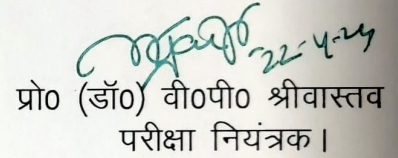 22-4-24
प्रो0 (डॉ0) वी0पी0 श्रीवास्तव
परीक्षा नियंत्रक।